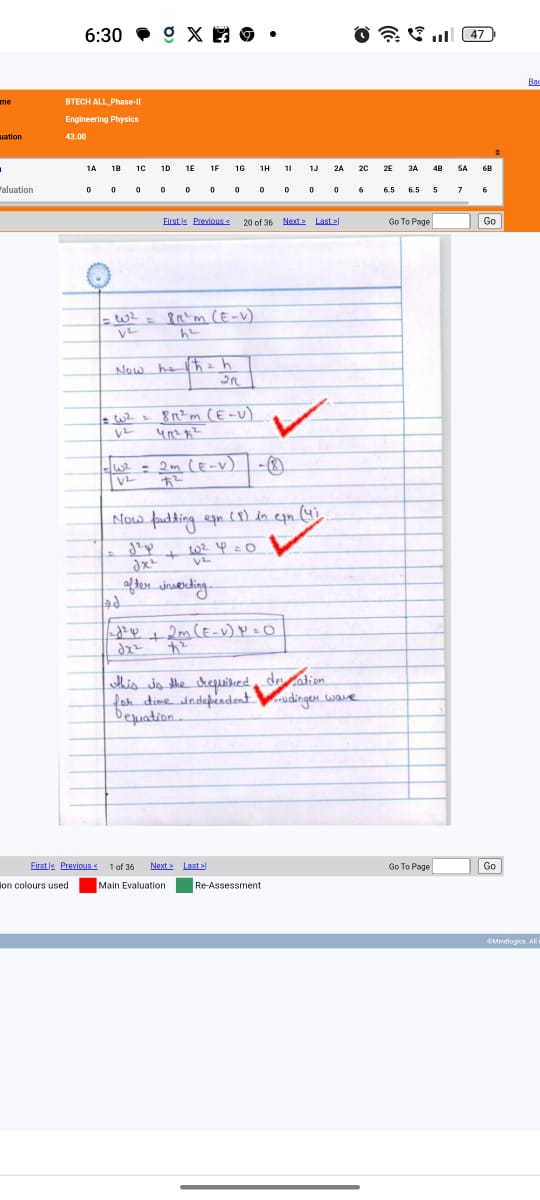 6:30
47
Bac
me BTECH ALL_Phase-II
Engineering Physics
uation 43.00
1A 1B 1C 1D 1E 1F 1G 1H 1I 1J 2A 2C 2E 3A 4B 5A 6B
Valuation 0 0 0 0 0 0 0 0 0 0 0 6 6.5 6.5 5 7 6
First|< Previous < 20 of 36 Next > Last >| Go To Page Go
= ω²/v² = 8π²m (E-V)/h²
Now ħ = h/2π
= ω²/v² = 8π²m (E-V)/4π²ħ²
= ω²/v² = 2m (E-V)/ħ² -(8)
Now putting eqn (8) in eqn (4)
= ∂²ψ/∂x² + ω²/v² ψ = 0
after inserting.
= ∂²ψ/∂x² + 2m/ħ² (E-V) ψ = 0
this is the required
for time independent wave
equation.
First|< Previous < 1 of 36 Next > Last >| Go To Page Go
ion colours used Main Evaluation Re-Assessment
©Mindlogicx. All